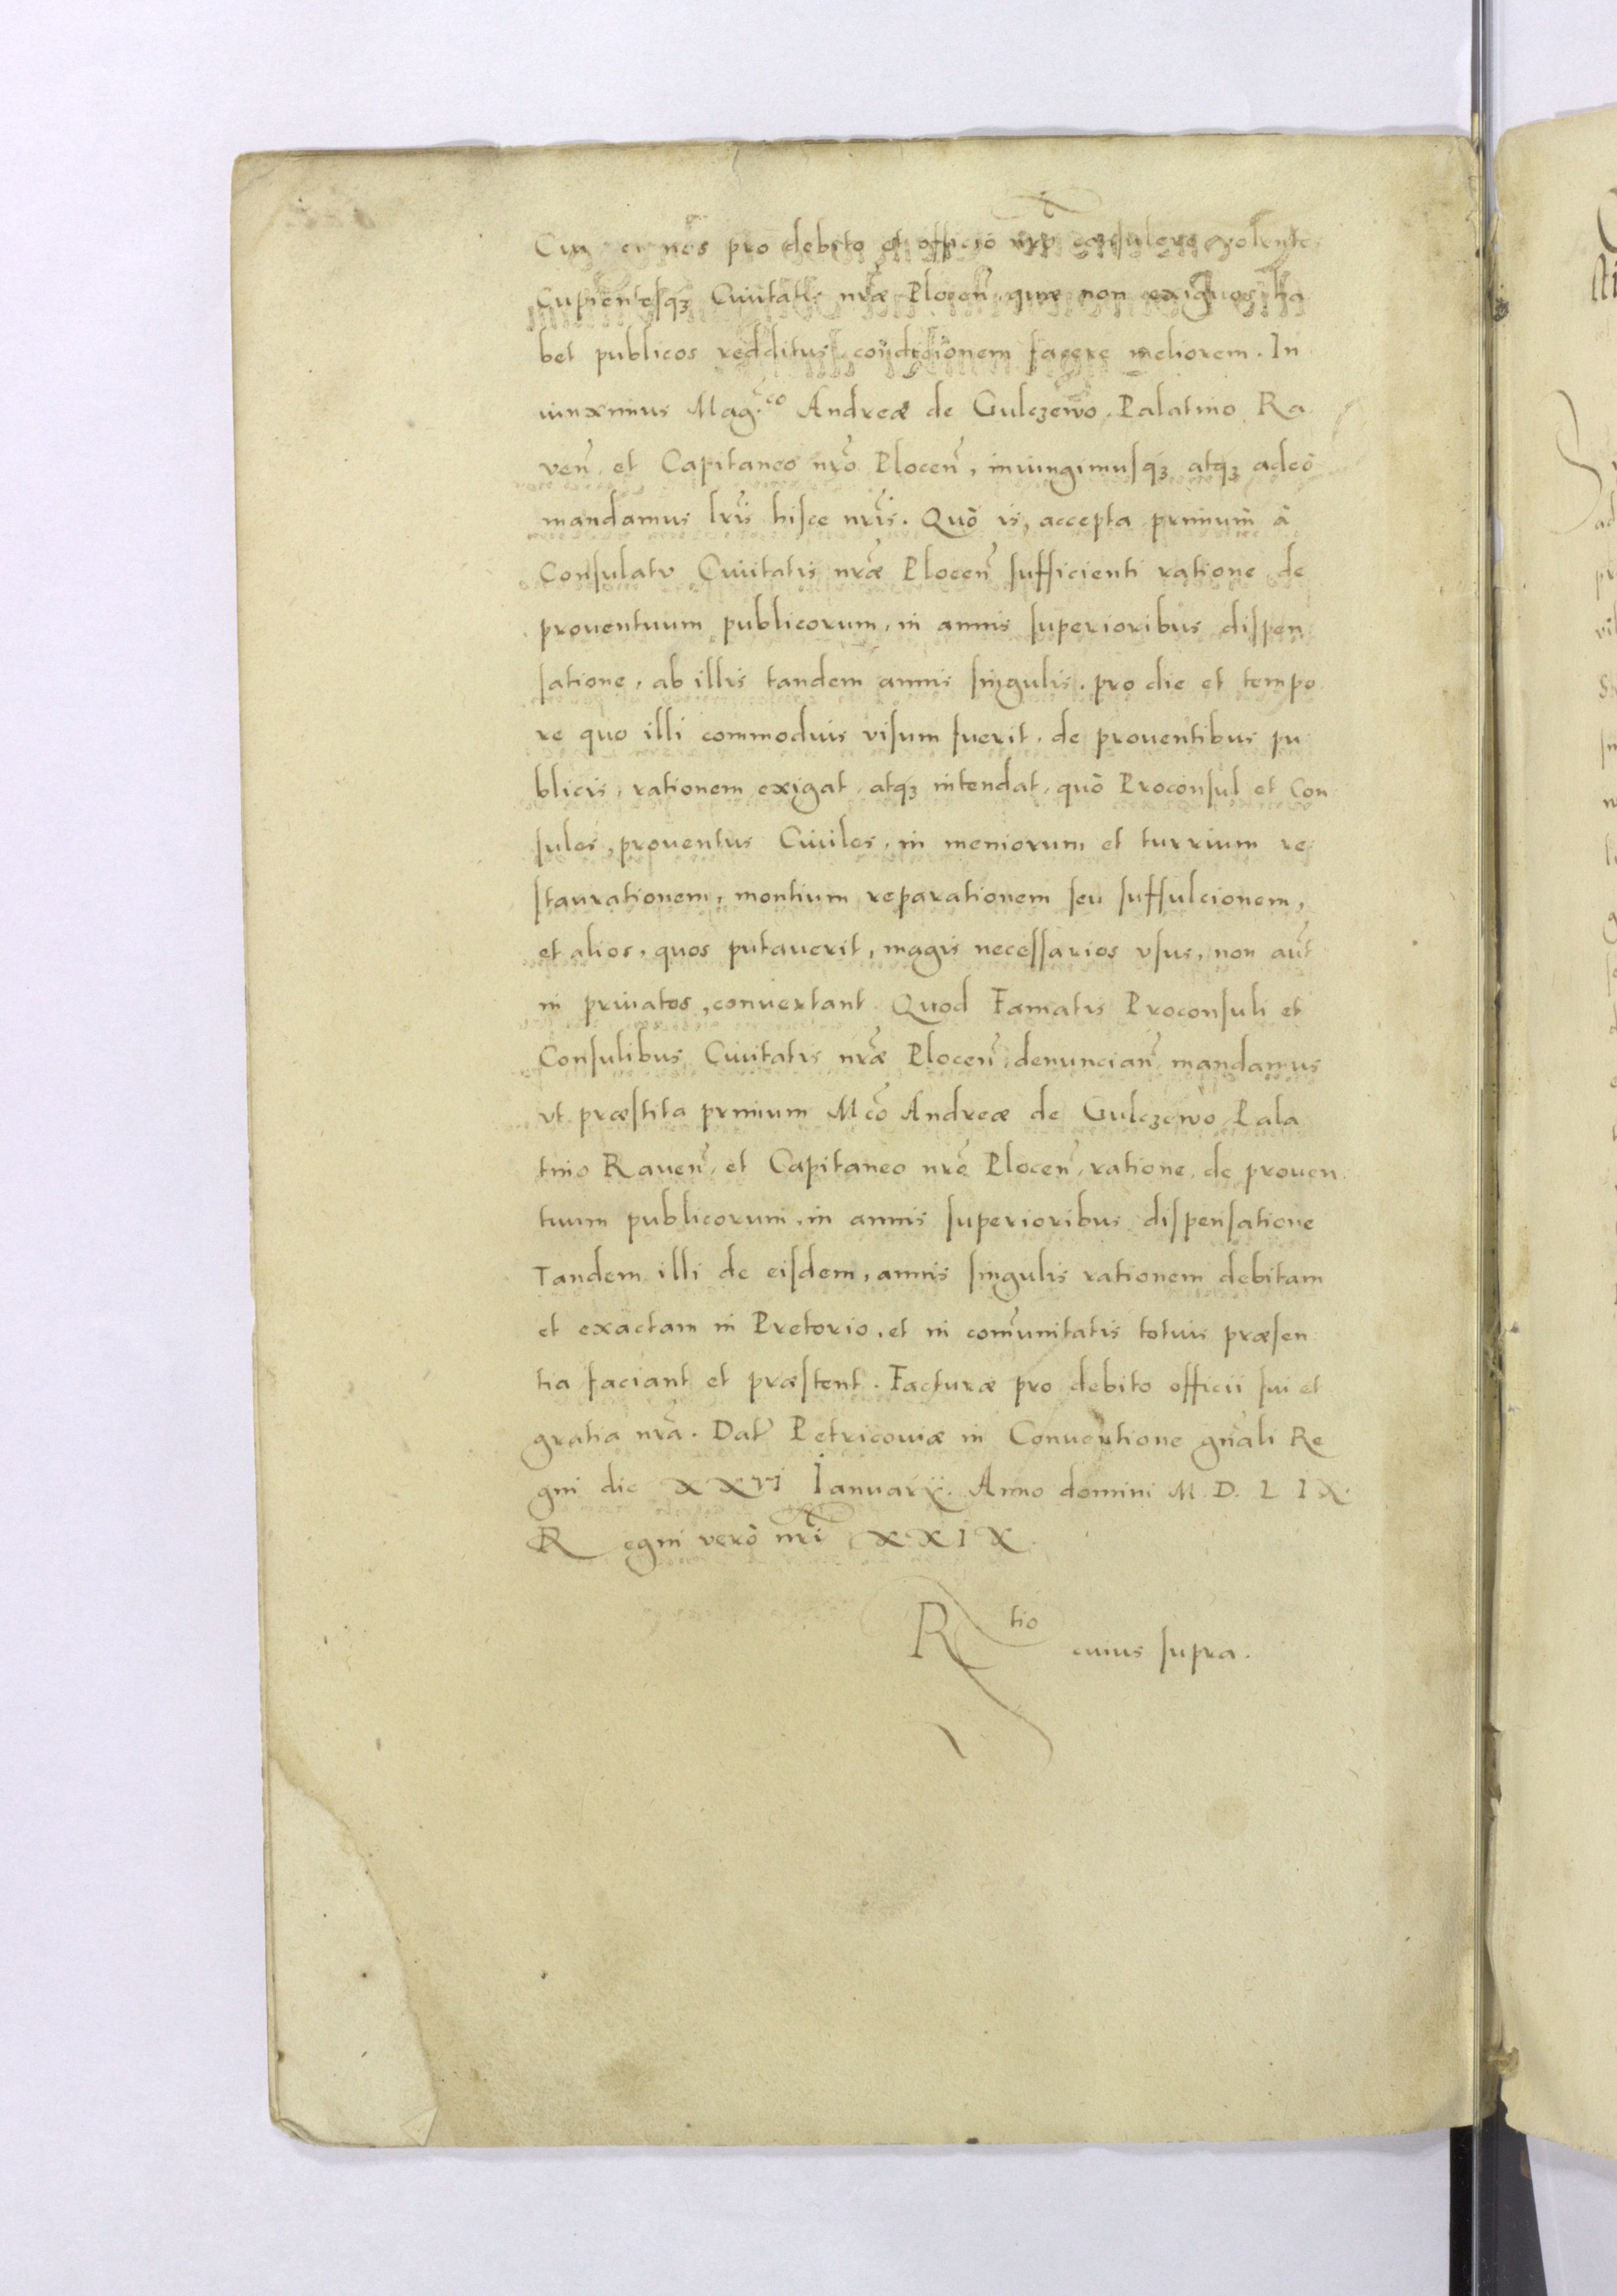 Cui et nos pro debito et officio nrõ consulere volente
Cupientesqȝ Civitatis nrǣ Plocen̄, quæ non exiguos ha
bet publicos redditus, conditionem facere meliorem. In
iunximus Mag.co Andreæ de Gulczewo, Palatino Ra
ven̄, et Capitaneo nrō Plocen̄, iniungimusqȝ atqȝ adeò
mandamus lrīs hisce nrīs. Quò is, accepta primum à
Consulatv Civitatis nrǣ Plocen̄ sufficienti ratione de
proventuum publicorum, in annis superioribus dispen
satione, ab illis tandem annis singulis, pro die et tempo
re quo illi commodius visum fuerit, de proventibus pu
blicis, rationem exigat, atqȝ intendat, quò Proconsul et Con
sules, proventus Civiles, in meniorum et turrium re
staurationem, montium reparationem seu suffulcionem,
et alios, quos putaverit, magis necessarios vsus, non aūt
in privatos, convertant. Quod Famatis Proconsuli et
Consulibus Civitatis nrǣ Plocen̄ denuncian̄ mandamus
vt præstita primum Mcō Andreæ de Gulczewo Pala
tino Raven̄, et Capitaneo nrō Plocen̄, ratione, de proven
tuum publicorum, in annis superioribus dispensatione
Tandem illi de eisdem, annis singulis rationem debitam
et exactam in Pretorio, et in com̄unitatis totius præsen
tia faciant et præstent. Facturæ pro debito officii sui et
gratia nrā. Dat̄ Petricoviæ in Conventione gn̄ali Re
gni die XXVI Ianuarij. Anno domini M. D. L I X.
Regni verò nrī XXIX.
Rtio cuius supra.